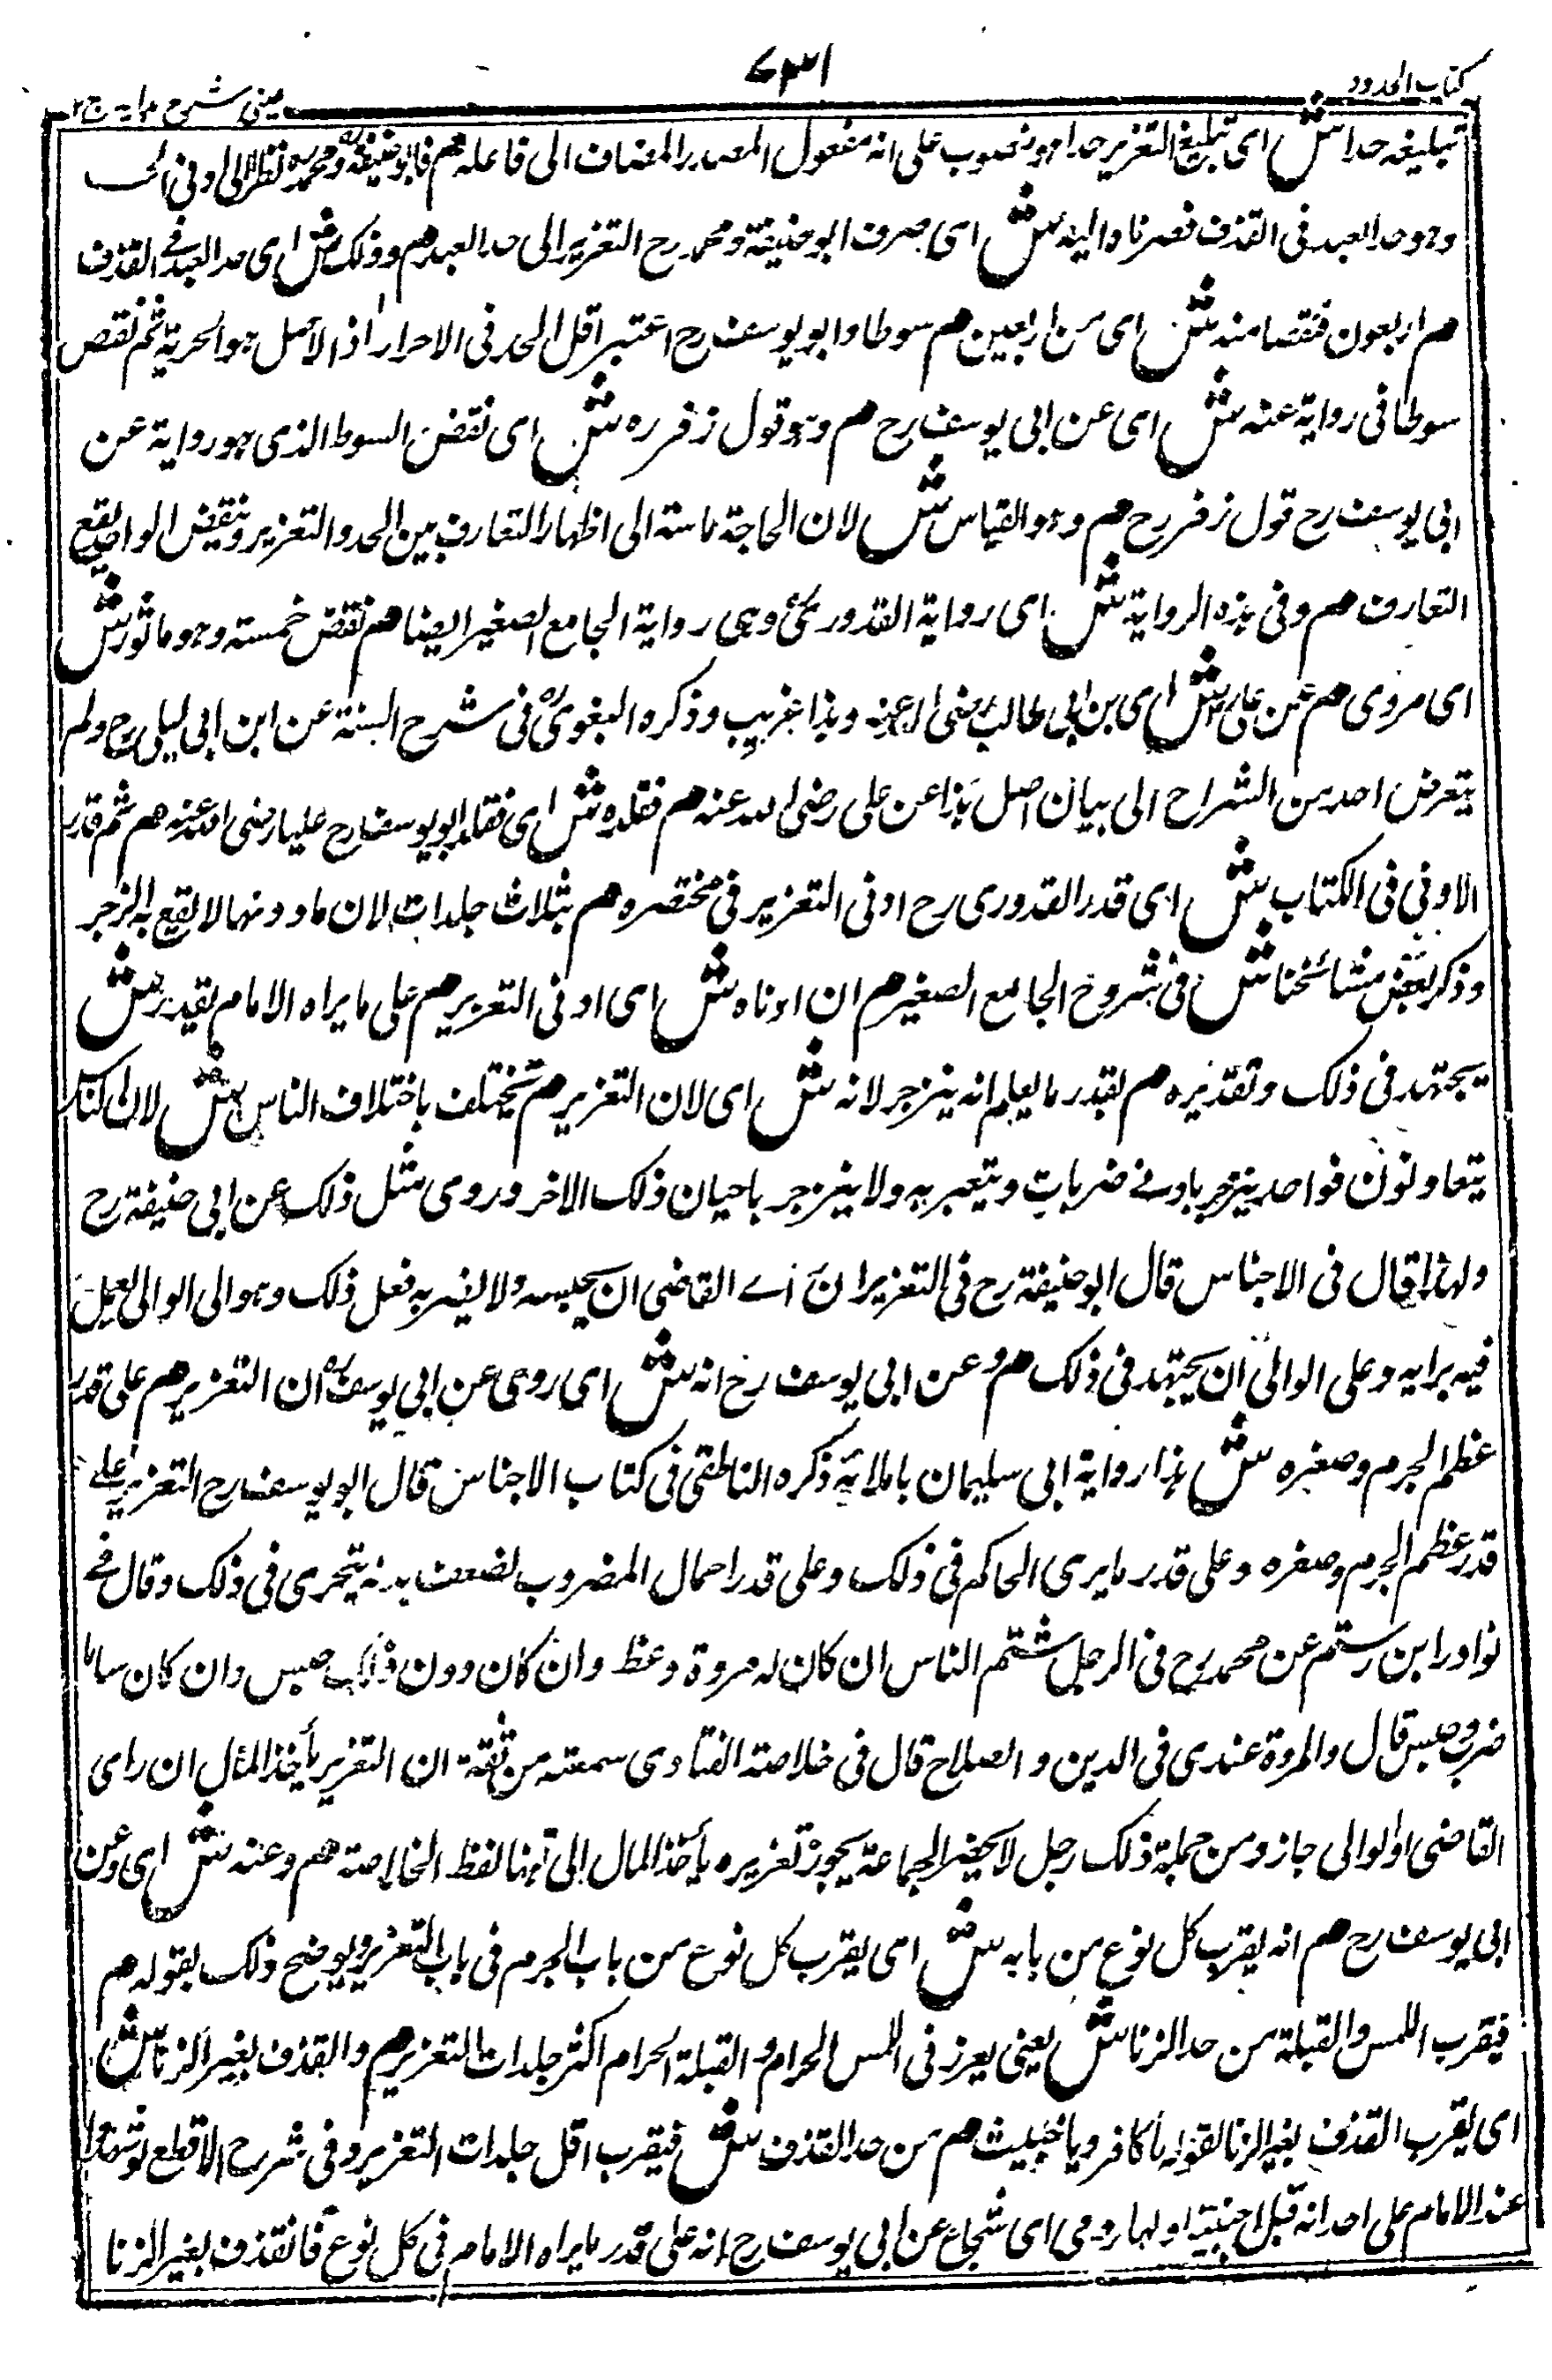 كتاب الحدود
٧٣١
عینی شرح ہدایہ ج ٢
تبليغه حدا ش اى تبليغ التعزير حدا وهو منصوب على انه مفعول المصدر المضاف الى فاعله هم فابو حنيفة رہ ومحمد رہ نظرا الى ادنى الحد
وهو حد العبد فى القذف فصرفاه اليه ش اى صرف ابو حنيفة ومحمد رح التعزير الى حد العبد هم وذلك ش اى حد العبد فے القذف
هم اربعون فنقصا منه ش اى من اربعين هم سوطا وابو يوسف رح اعتبر اقل الحد فى الاحرار اذ الاصل هو الحرية ثم نقص
سوطا فى رواية عنه ش اى عن ابى يوسف رح هم وهو قول زفر رہ ش اى نقض السوط الذى هو رواية عن
ابى يوسف رح قول زفر رح هم وهو القياس ش لان الحاجة ماسة الى اظهار التعارف بين الحد والتعزير وبنقيض الواحد يقع
التعارف هم وفى هذه الرواية ش اى رواية القدورى وهى رواية الجامع الصغير ايضا هم نقض خمسة وهو ماثور ش
اى مروى هم عن على ش اى بن ابى طالب رضى الله عنه وهذا غريب وذكره البغوى فى شرح السنة عن ابن ابى ليلى رح ولم
يتعرض احد من الشراح الى بيان اصل هذا عن على رضى الله عنه هم فقلده ش اى فقلد ابو يوسف رح عليا رضى الله عنه هم ثم قدر
الادنى فى الكتاب ش اى قدر القدورى رح ادنى التعزير فى مختصره هم بثلاث جلدات لان ما دونها لا يقع به الزجر
وذكر بعض مشائخنا ش فى شروح الجامع الصغير هم ان ادناه ش اى ادنى التعزير هم على ما يراه الامام يقدره ش
يجتهد فى ذلك وتقديره هم بقدر ما يعلم انه ينزجر لانه ش اى لان التعزير هم يختلف باختلاف الناس ش لان الناس
يتفاوتون فواحد ينزجر بادنے ضربات ويتعبر به ولا ينزجر باحيان ذلك الاخر وروى مثل ذلك عن ابى حنيفة رح
ولهذا قال فى الاجناس قال ابو حنيفة رح فى التعزير ان رأے القاضى ان يحبسه ولا يضربه فعل ذلك وهو الى الوالى يعمل
فيه برايه وعلى الوالى ان يجتهد فى ذلك هم وعن ابى يوسف رح انه ش اى روى عن ابى يوسف رہ ان التعزير هم على قدر
عظم الجرم وصغره ش هذا رواية ابى سليمان باملائه ذكره الناطقى فى كتاب الاجناس قال ابو يوسف رح التعزير على
قدر عظم الجرم وصغره وعلى قدر ما يرى الحاكم فى ذلك وعلى قدر احمال المضروب لضعف بدنه يتحرى فى ذلك وقال فے
نوادر ابن رستم عن محمد رح فى الرجل شتم الناس ان كان له مروة وعظ وان كان دون ذلك حبس وان كان سابا
ضرب وحبس قال والمروة عندى فى الدين والصلاح قال فى خلاصة الفتاوى سمعته من ثقة ان التعزير يأخذ المال ان راى
القاضى او الوالى جاز ومن جملة ذلك رجل لا يحضر الجماعة يجوز تعزيره بأخذ المال الى هنا لفظ الخلاصة هم وعنه ش اى وعن
ابى يوسف رح هم انه يقرب كل نوع من بابه ش اى يقرب كل نوع من باب الجرم فى باب التعزير ويوضح ذلك بقوله هم
فيقرب اللمس والقبلة من حد الزنا ش يعنى يعزر فى المس الحرام والقبلة الحرام اكثر جلدات التعزير هم والقذف بغير الزنا ش
اى يقرب القذف بغير الزنا لقوله يا كافر ويا خبيث هم من حد القذف ش فيقرب اقل جلدات التعزير وفى شرح الاقطع لو شهدا
عند الامام على احد انه قبل اجنبية او لها روى اى شجاع عن ابى يوسف رح انه على قدر ما يراه الامام فى كل نوع فالقذف بغير الزنا